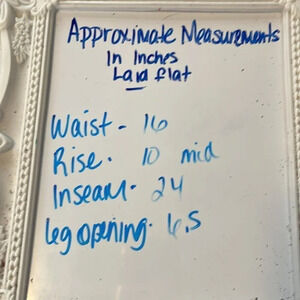 Approximate Measurements
In Inches
Laid flat
Waist - 16
Rise - 10 mid
Inseam - 24
leg opening - 6.5